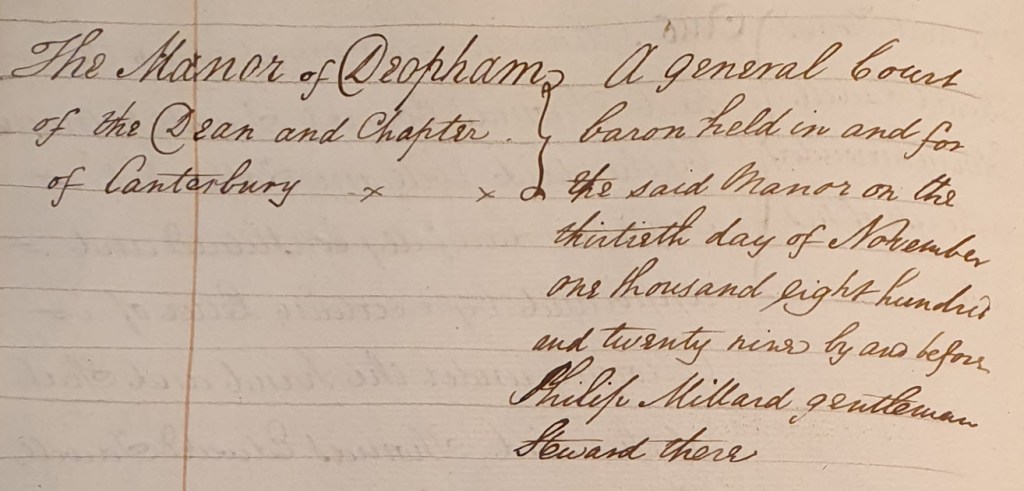 The Manor of Deopham
of the Dean and Chapter
of Canterbury × ×
A general Court
baron held in and for
the said Manor on the
thirtieth day of November
one thousand eight hundred
and twenty nine by and before
Philip Millard gentleman
Steward there